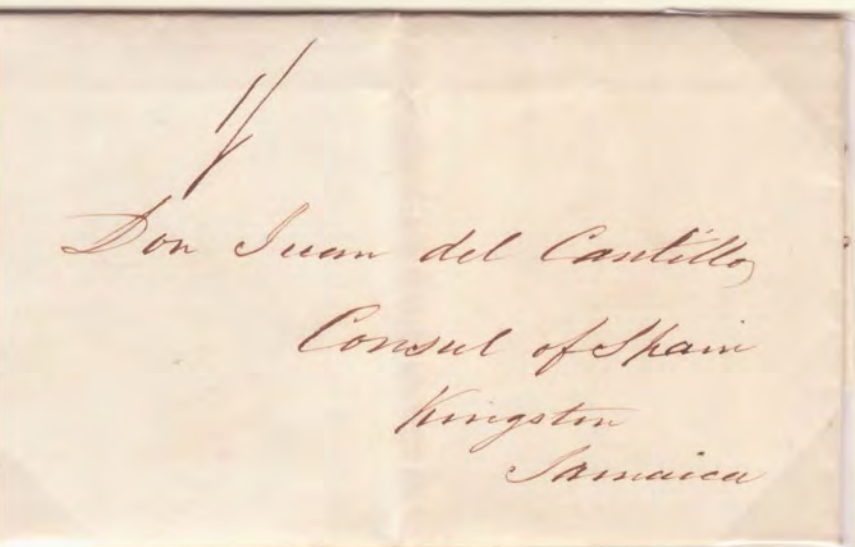 1/
Don Juan del Castillo,
Consul of Spain
Kingston
Jamaica